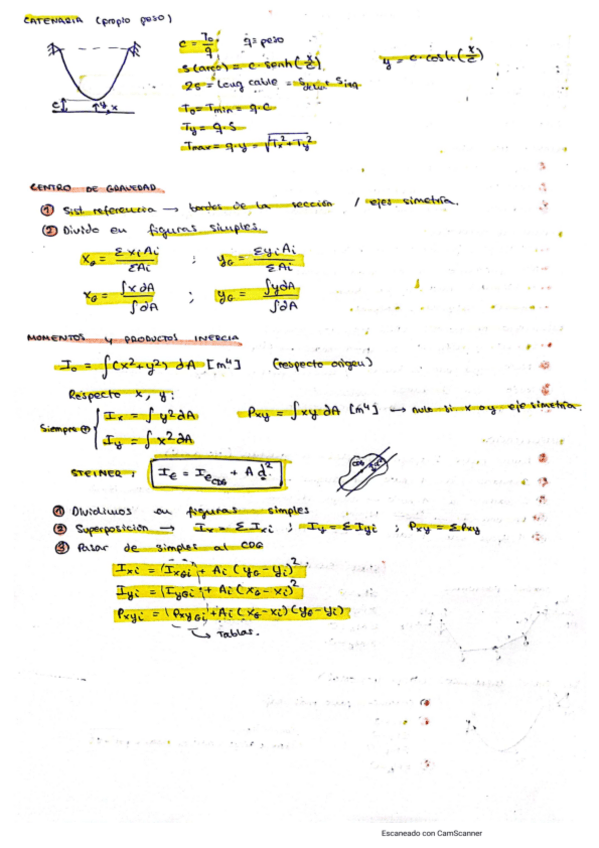 CATENARIA (propio peso)
c = To/q   q = peso   y = c·cosh(x/c)
s(arco) = c·senh(x/c)
2s = Long cable = Sdcha + Sizq
c   y   x
To = Tmin = q·c
Ty = q·s
Tmax = q·y = √(Tx² + Ty²)
CENTRO DE GRAVEDAD
① Sist referencia → bordes de la sección / ejes simetría.
② Divido en figuras simples.
xG = Σxi Ai / ΣAi ; yG = Σyi Ai / ΣAi
xG = ∫x dA / ∫dA ; yG = ∫y dA / ∫dA
MOMENTOS y PRODUCTOS INERCIA
Io = ∫(x²+y²) dA [m⁴] (respecto origen)
Respecto x, y:
Siempre ⊕ { Ix = ∫y² dA   Pxy = ∫xy dA [m⁴] → nulo si x o y eje simetría.
Iy = ∫x² dA
STEINER: Ie = IeCDG + A d²
① Dividimos en figuras simples
② Superposición → Ix = ΣIxi ; Iy = ΣIyi ; Pxy = ΣPxy
③ Pasar de simples al CDG
Ixi = (IxGi) + Ai (yG - yi)²
Iyi = (IyGi) + Ai (xG - xi)²
Pxyi = (PxyGi) + Ai (xG - xi)(yG - yi)
↳ Tablas.
Escaneado con CamScanner